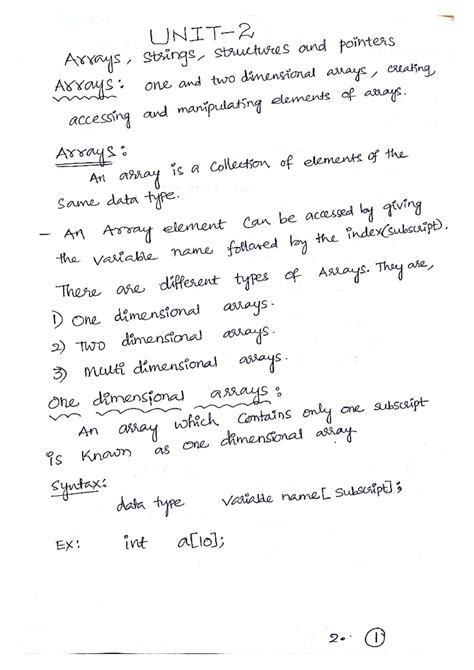 UNIT-2
Arrays, strings, structures and pointers
Arrays: one and two dimensional arrays, creating,
accessing and manipulating elements of arrays.
Arrays:
An array is a collection of elements of the
same data type.
- An Array element can be accessed by giving
the variable name follared by the index(subscript).
There are different types of Arrays. They are,
1) One dimensional arrays.
2) TWO dimensional arrays.
3) Multi dimensional arrays.
One dimensional arrays:
An array which contains only one subscript
is known as one dimensional array
Syntax:
data type variable name[subscript];
EX: int a[10];
2. 1